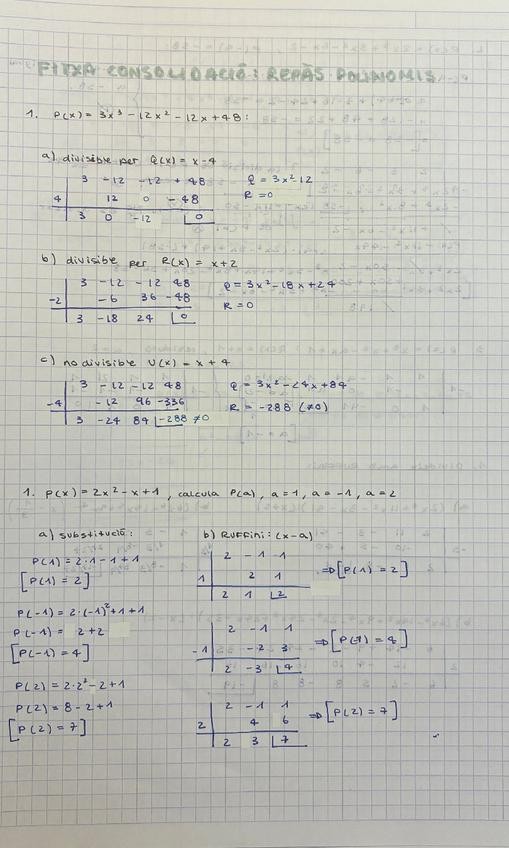 FITXA CONSOLIDACIÓ: REPÀS POLINOMIS
1. P(x) = 3x³ - 12x² - 12x + 48:
a) divisible per Q(x) = x - 4
3 -12 -12 + 48 Q = 3x² - 12
4 12 0 - 48 R = 0
3 0 -12 0
b) divisible per R(x) = x + 2
3 -12 -12 48 Q = 3x² - 18x + 24
-2 -6 36 -48 R = 0
3 -18 24 0
c) no divisible U(x) = x + 4
3 -12 -12 48 Q = 3x² - 24x + 84
-4 -12 96 -336 R = -288 (≠0)
3 -24 84 -288 ≠0
1. P(x) = 2x² - x + 1, calcula P(a), a = 1, a = -1, a = 2
a) substitució:
P(1) = 2·1 - 1 + 1
[P(1) = 2]
P(-1) = 2·(-1)² + 1 + 1
P(-1) = 2 + 2
[P(-1) = 4]
P(2) = 2·2² - 2 + 1
P(2) = 8 - 2 + 1
[P(2) = 7]
b) Ruffini: (x-a)
2 -1 1
1 2 1 ⇒ [P(1) = 2]
2 1 2
2 -1 1
-1 -2 3 ⇒ [P(-1) = 4]
2 -3 4
2 -1 1
2 4 6 ⇒ [P(2) = 7]
2 3 7